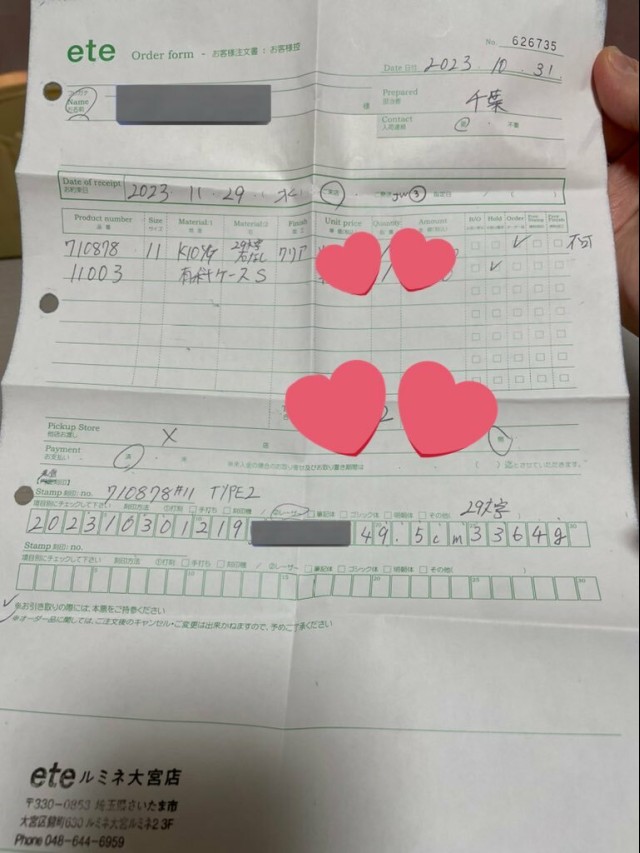 ete Order form - お客様注文書:お客様控
No. 626735
Date 2023. 10. 31
Name
お名前
様
Prepared
担当者
千葉
Contact
入荷連絡
Date of receipt
お約束日
2023. 11. 29
Product number Size Material:1 Material:2 Finish Unit price Quantity Amount B/O Hold Order
710878 11 K10YG 29文字 石なし クリア 不可
11003 有料ケースS
Pickup Store
Payment
お支払い
済
Stamp 刻印: no. 710878#11 TYPE2
項目別にチェックして下さい 刻印方法 ①打刻 □手打ち □刻印機 / ②レーザー □筆記体 □ゴシック体 □明朝体 □その他( 29文字
202310301219 49.5cm3364g
Stamp 刻印: no.
項目別にチェックして下さい 刻印方法 ①打刻 □手打ち □刻印機 / ②レーザー □筆記体 □ゴシック体 □明朝体 □その他( )
※お引き取りの際には、本票をご持参ください
※オーダー品に関しては、ご注文後のキャンセル・ご変更は出来かねますので、予めご了承ください
ete ルミネ大宮店
〒330-0853 埼玉県さいたま市
大宮区錦町630 ルミネ大宮ルミネ2 3F
Phone 048-644-6959